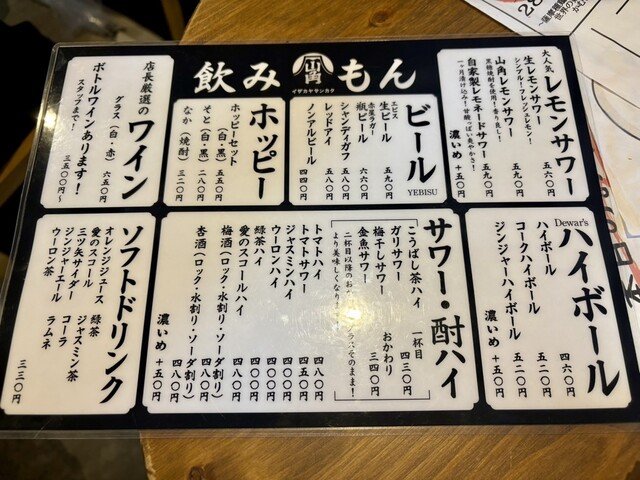 飲み
山角
イザカヤサンカク
もん
大人気
レモンサワー
生レモンサワー 五六〇円
シンプル!フレッシュレモン!
山角レモンサワー 五九〇円
黒糖焼酎を使用!香り良し!
自家製レモネードサワー 五九〇円
一ヶ月漬け込み!甘酸っぱい爽やかさ!
濃いめ +五〇円
ビール
YEBISU
エビス
生ビール 五九〇円
赤星ラガー
瓶ビール 六六〇円
シャンディガフ 五八〇円
レッドアイ 五八〇円
ノンアルビール 四四〇円
ホッピー
ホッピーセット
(白・黒) 五五〇円
そと(白・黒) 二八〇円
なか(焼酎) 三二〇円
店長厳選の
ワイン
グラス(白・赤) 六五〇円
ボトルワインあります!
スタッフまで! 三五〇〇円〜
Dewar's
ハイボール
ハイボール 四六〇円
コークハイボール 五二〇円
ジンジャーハイボール 五二〇円
濃いめ +五〇円
サワー・酎ハイ
こうばし茶ハイ
ガリサワー
梅干しサワー
金魚サワー
一杯目 四三〇円
おかわり 三四〇円
二杯目以降のお
より美味しくなり
そのまま!
トマトハイ 四八〇円
トマトサワー 四五〇円
ジャスミンハイ 四〇〇円
ウーロンハイ 四〇〇円
緑茶ハイ 四〇〇円
愛のスコールハイ 四八〇円
梅酒(ロック・水割り・ソーダ割り) 四八〇円
杏酒(ロック・水割り・ソーダ割り) 四八〇円
濃いめ +五〇円
ソフトドリンク
オレンジジュース 緑茶
愛のスコール ジャスミン茶
三ツ矢サイダー コーラ
ジンジャーエール ラムネ
ウーロン茶
三三〇円